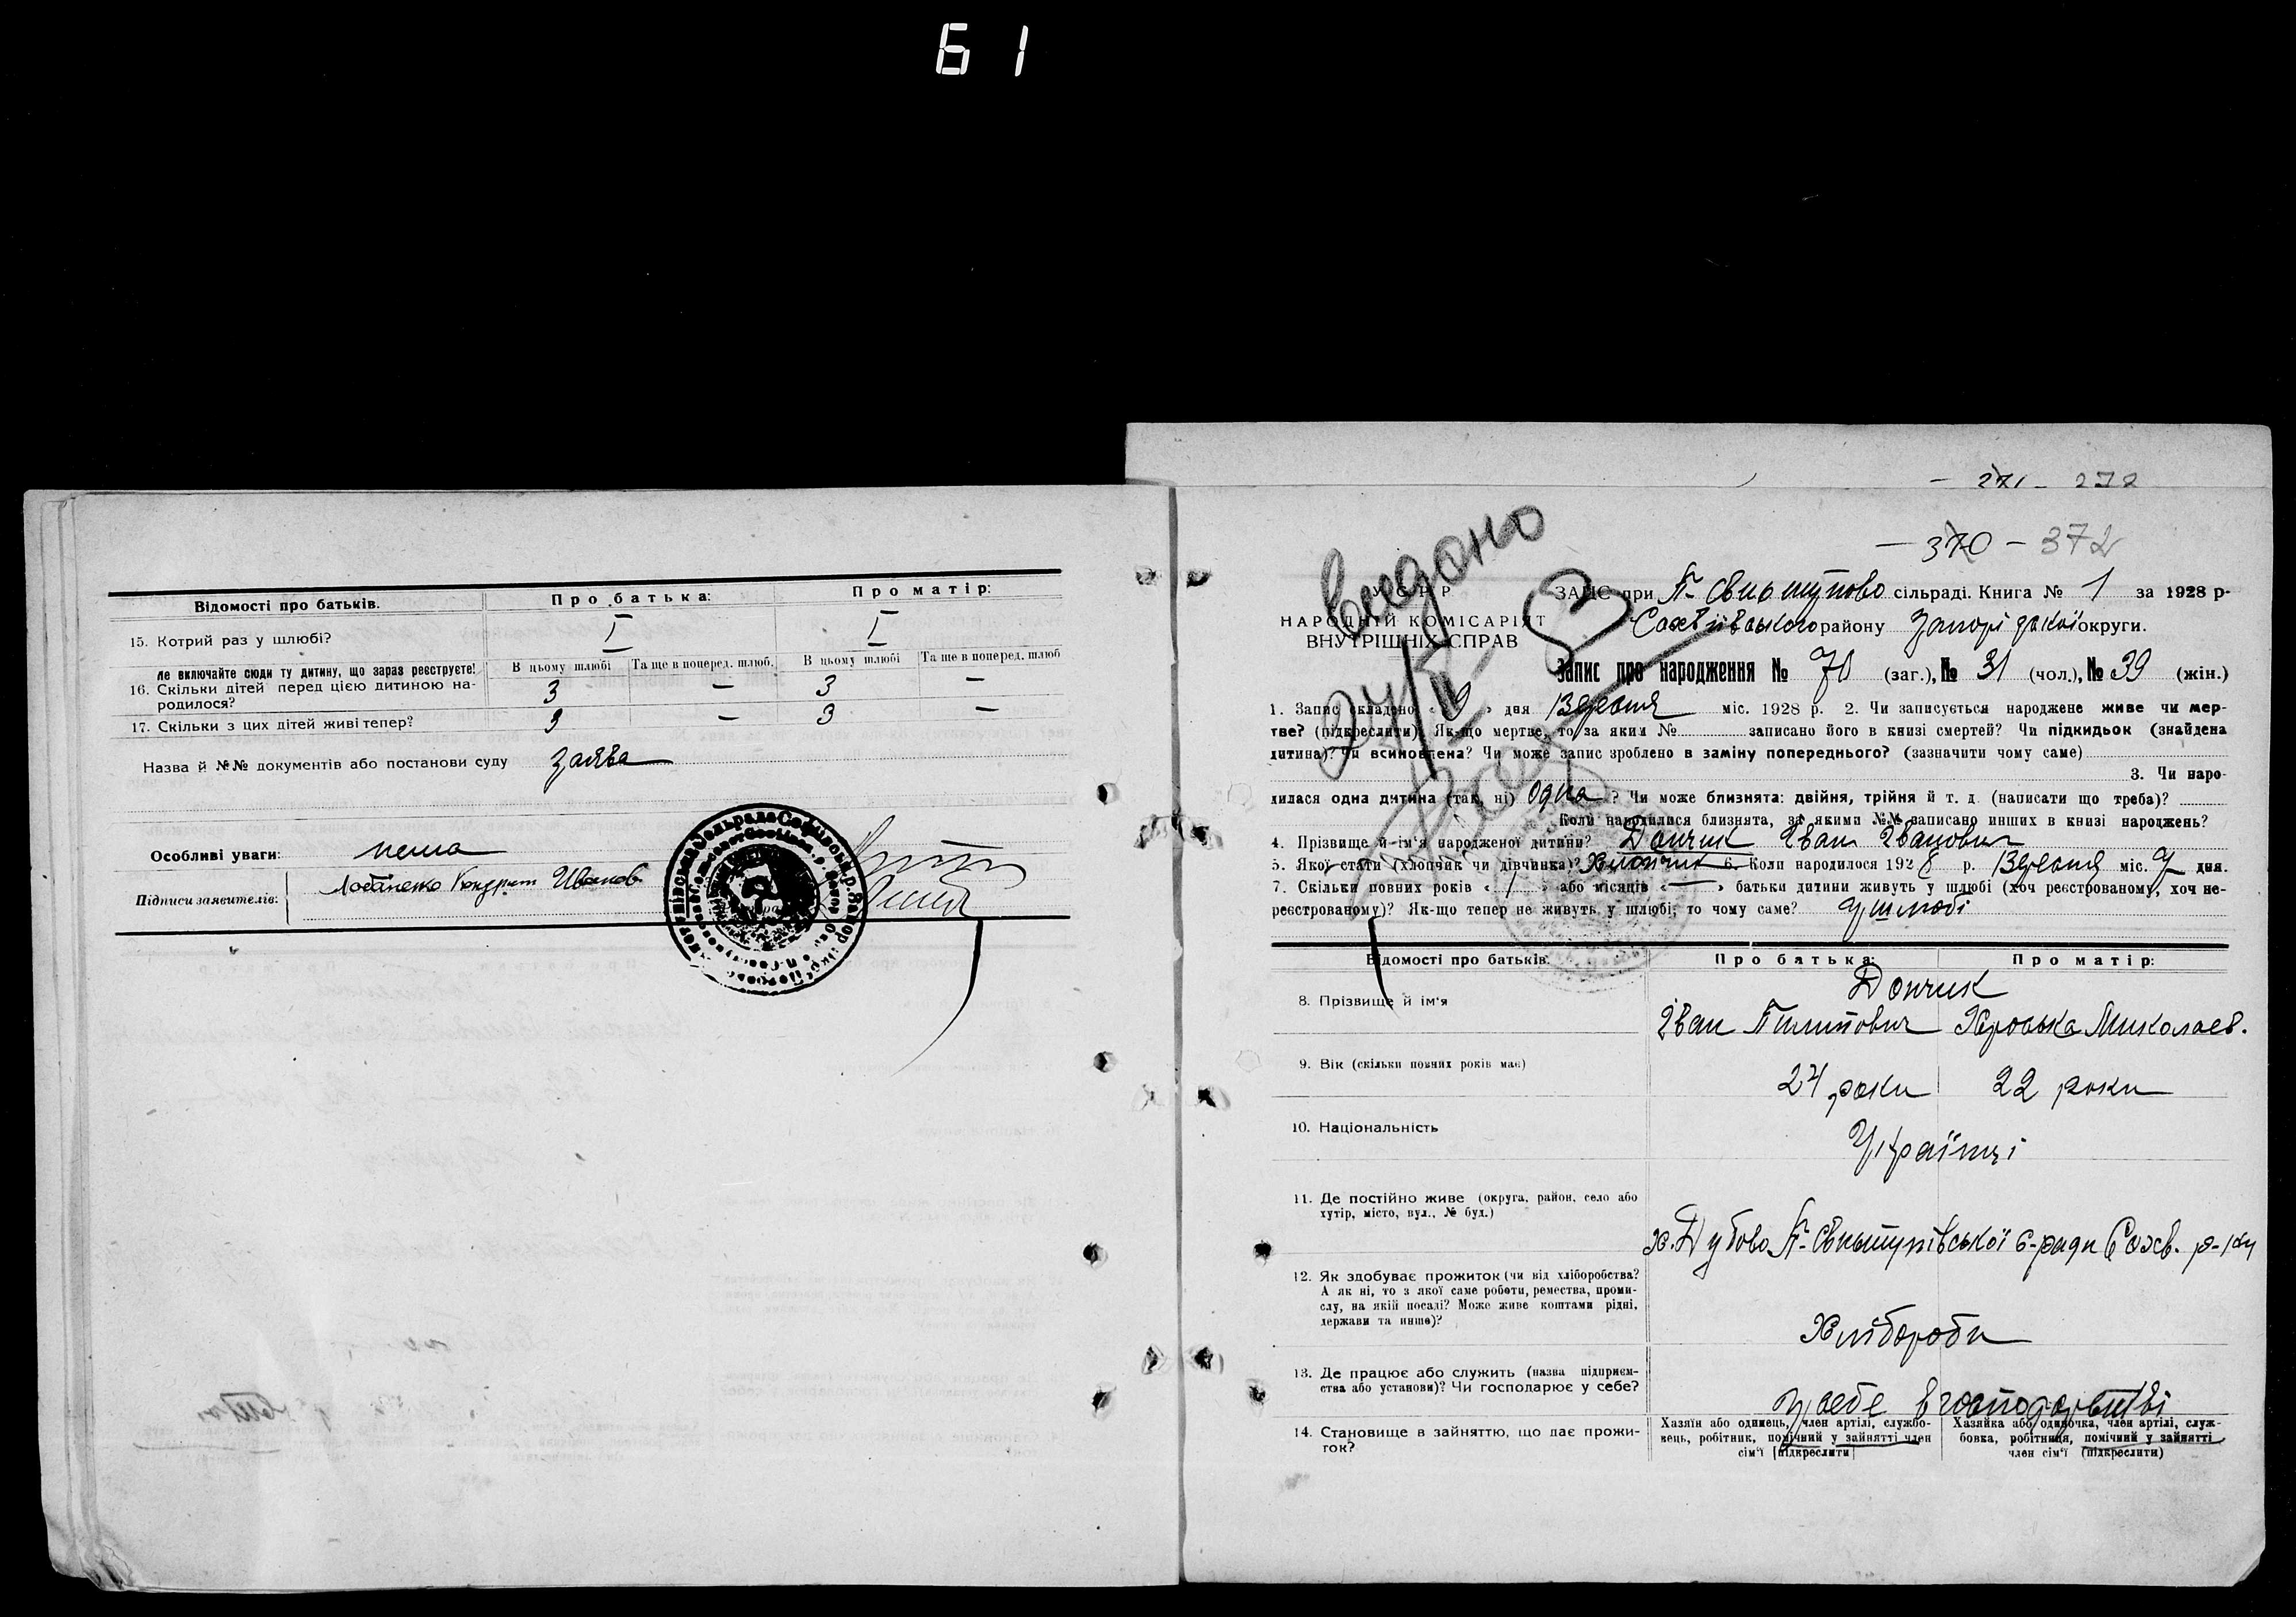 61
Відомості про батьків. Про батька: Про матір:
15. Котрий раз у шлюбі? I I
Не включайте сюди ту дитину, що зараз реєструєте! В цьому шлюбі Та ще в поперед. шлюб. В цьому шлюбі Та ще в поперед. шлюб
16. Скільки дітей перед цією дитиною на-
родилося? 3 — 3 —
17. Скільки з цих дітей живі тепер? 3 — 3 —
Назва й №№ документів або постанови суду заява
Особливі уваги: нема
Підписи заявителів: Лобаненко Кондрат Иванов
- 271 - 272
- 370 - 372
Видано
У С Р Р
НАРОДНІЙ КОМІСАРІЯТ
ВНУТРІШНІХ СПРАВ
ЗАПС при П- сільраді. Книга № 1 за 1928 р-
району округи.
Запис про народження № 70 (заг.), № 31 (чол.), № 39 (жін.)
1. Запис складено « 9 » дня Вересня міс. 1928 р. 2. Чи записується народжене живе чи мер-
тве? (підкреслити). Як-що мертве, то за яким № записано його в книзі смертей? Чи підкидьок (знайдена
дитина)? Чи всиновлена? Чи може запис зроблено в заміну попереднього? (зазначити чому саме)
3. Чи наро-
дилася одна дитина (так, ні) Одна ? Чи може близнята: двійня, трійня й т. д. (написати що треба)?
Коли народилися близнята, за якими №№ записано инших в книзі народжень?
4. Прізвище й ім'я народженої дитини? Дончик Іван Іванович
5. Якої стати (хлопчик чи дівчинка)? Хлопчик 6. Коли народилося 1928 р. Вересня міс. 9 дня.
7. Скільки повних років « 1 » або місяців « — » батьки дитини живуть у шлюбі (хоч реєстрованому, хоч не-
реєстрованому)? Як-що тепер не живуть у шлюбі, то чому саме? у шлюбі
Відомості про батьків: Про батька: Про матір:
Дончик
8. Прізвище й ім'я Іван Пилипович Хроська Миколаєв.
9. Вік (скільки повних років має) 24 роки 22 роки
10. Національність Українці
11. Де постійно живе (округа, район, село або
хутір, місто, вул., № буд.)
х. Дубово П- с-ради Софв. р-ну
12. Як здобуває прожиток (чи від хліборобства?
А як ні, то з якої саме роботи, ремества, проми-
слу, на якій посаді? Може живе коштами рідні,
держави та инше)?
Хлібороби
13. Де працює або служить (назва підприєм-
ства або установи)? Чи господарює у себе?
у себе в господарстві
14. Становище в зайняттю, що дає прожи-
ток?
Хазяїн або одинець, член артілі, службо-
вець, робітник, помічний у зайнятті член
сім'ї [підкреслити]
Хазяйка або одиночка, член артілі, служ-
бовка, робітниця, помічний у зайнятті
член сім'ї (підкреслити)